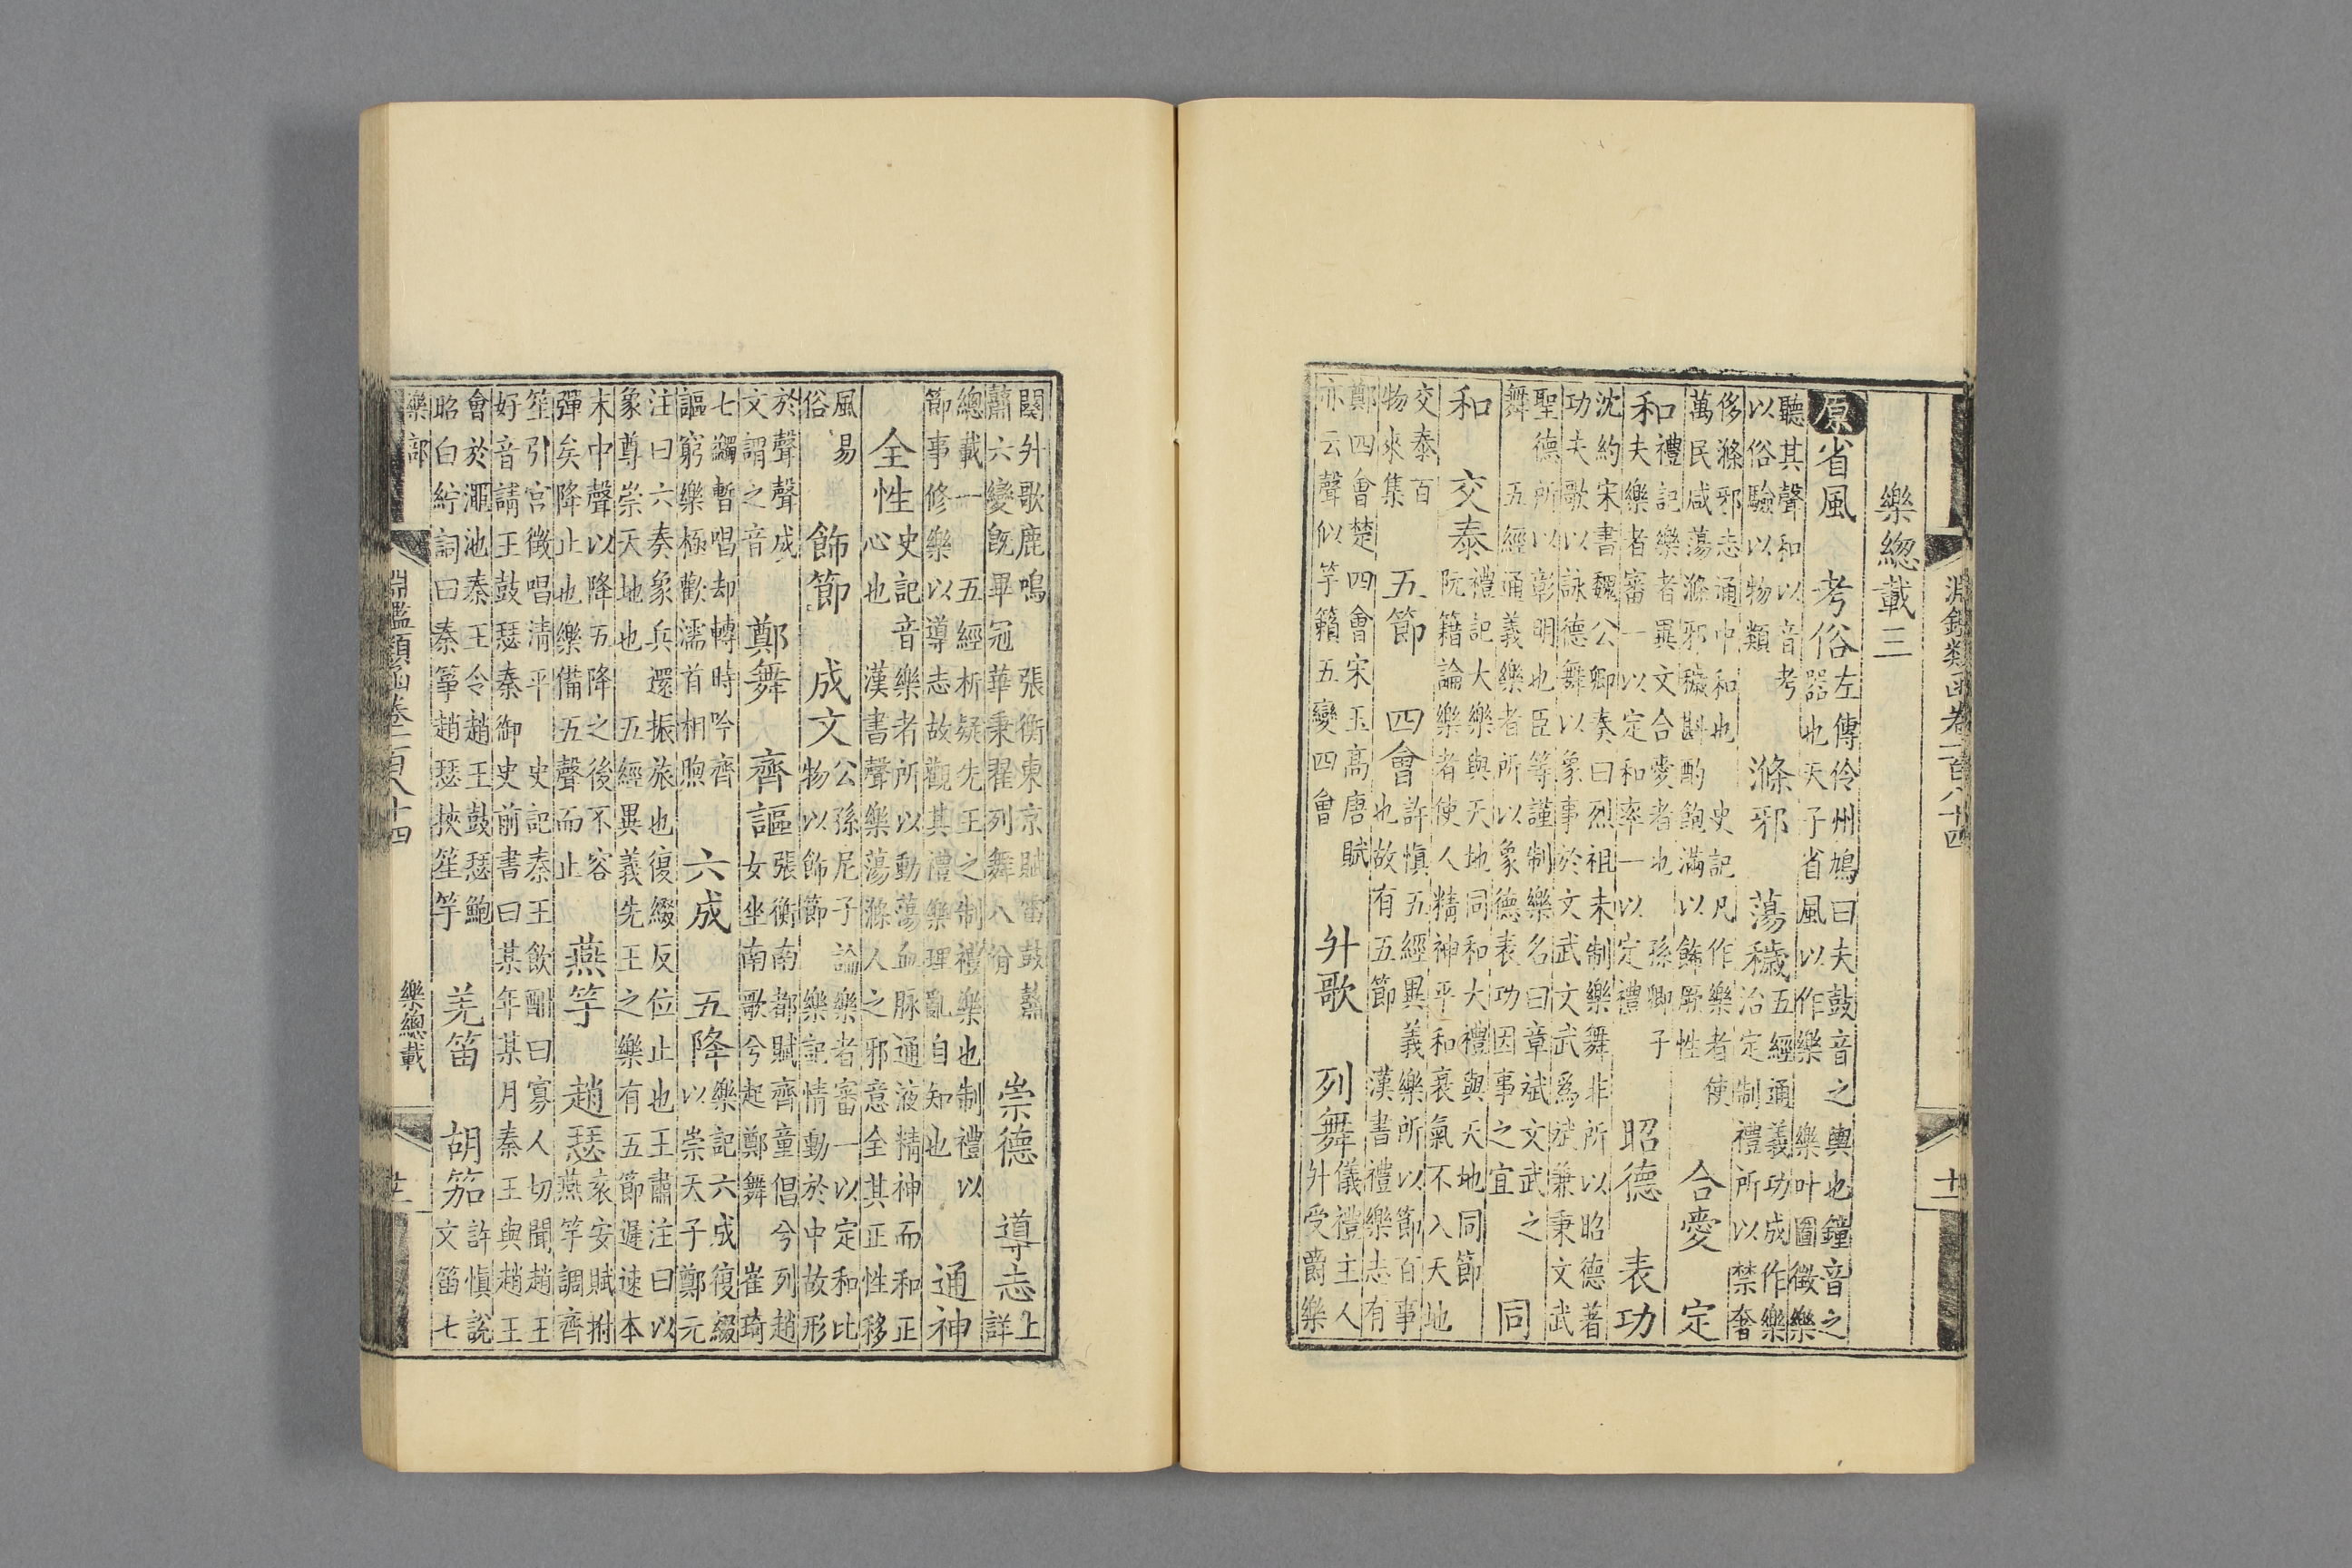 淵鑑類函卷一百八十四
十一
樂總載三
原省風 考俗
左傳伶州鳩曰夫鼓音之輿也鐘音之
器也天子省風以作樂 樂叶圖徵樂
聽其聲和以音考
以俗驗以物類
滌邪 蕩穢
五經通義功成作樂
治定制禮所以禁奢
侈滌邪志通中和也 史記凡作樂者使
萬民咸蕩滌邪穢斟酌飽滿以飾厥性
合愛 定
和
禮記樂者異文合愛者也 孫卿子
夫樂者審一以定和率一以定禮
昭德 表功
沈約宋書魏公卿奏曰烈祖未制樂舞非所以昭德著
功夫歌以詠德舞以象事於文武文武爲斌兼秉文武
聖德所以彰明也臣等謹制樂名曰章斌文武之
舞 五經通義樂者所以象德表功因事之宜
同
和 交泰
禮記大樂與天地同和大禮與天地同節
阮籍論樂者使人精神平和衰氣不入天地
交泰百
物來集
五節 四會
許慎五經異義樂所以節百事
也故有五節 漢書禮樂志有
鄭四會楚四會宋玉高唐賦
亦云聲似竽籟五變四會
升歌 列舞
儀禮主人
升受爵樂
闋升歌鹿鳴 張衡東京賦雷鼓鼝
鼘六變旣畢冠華秉翟列舞八佾
崇德 導志
上
詳
總載一 五經析疑先王之制禮樂也制禮以
節事修樂以導志故觀其禮樂理亂自知也
通神
全性
史記音樂者所以動蕩血脉通液精神而和正
心也 漢書聲樂蕩滌人之邪意全其正性移
風易
俗
飾節 成文
公孫尼子論樂者審一以定和比
物以飾節 樂記情動於中故形
於聲聲成
文謂之音
鄭舞 齊謳
張衡南都賦齊童倡兮列趙
女坐南歌兮起鄭舞 崔琦
七蠲暫唱却轉時吟齊
謳窮樂極歡濡首相煦
六成 五降
樂記六成復綴
以崇天子鄭元
注曰六奏象兵還振旅也復綴反位止也王肅注曰以
象尊崇天地也 五經異義先王之樂有五節遲速本
末中聲以降五降之後不容
彈矣降止也樂備五聲而止
燕竽 趙瑟
亥安賦拊
燕竽調齊
笙引宮徵唱淸平 史記秦王飲酣曰寡人切聞趙王
好音請王鼓瑟秦御史前書曰某年某月秦王與趙王
會於澠池秦王令趙王鼓瑟鮑
昭白紵詞曰秦箏趙瑟挾笙竽
羌笛 胡笳
許愼說
文笛七
樂部
淵鑑類函卷一百八十四
樂總載